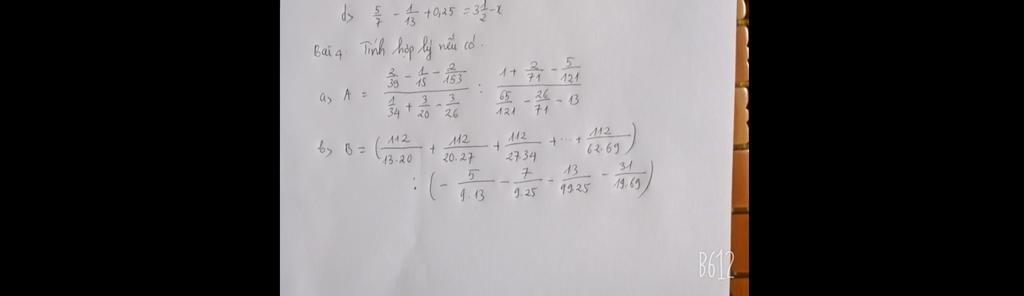 d> 5/7 - 1/13 + 0,25 = 3 1/2 - x
Bài 4. Tính hợp lý nếu có.
a> A = (2/39 - 1/15 - 2/153)/(1/34 + 3/20 - 3/26) : (1 + 2/71 - 5/121)/(65/121 - 26/71 - 13)
b> B = (112/13.20 + 112/20.27 + 112/27.34 + ... + 112/62.69)
: (- 5/9.13 - 7/9.25 - 13/19.25 - 31/19.69)
B612